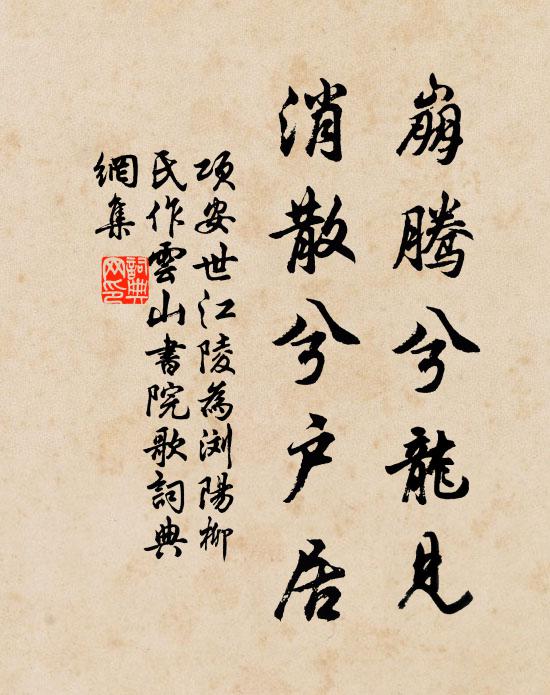 崩腾兮龍见
消散兮户居
项安世江陵為浏陽柳
氏作雲山書院歌詞典
網集
詞典网印